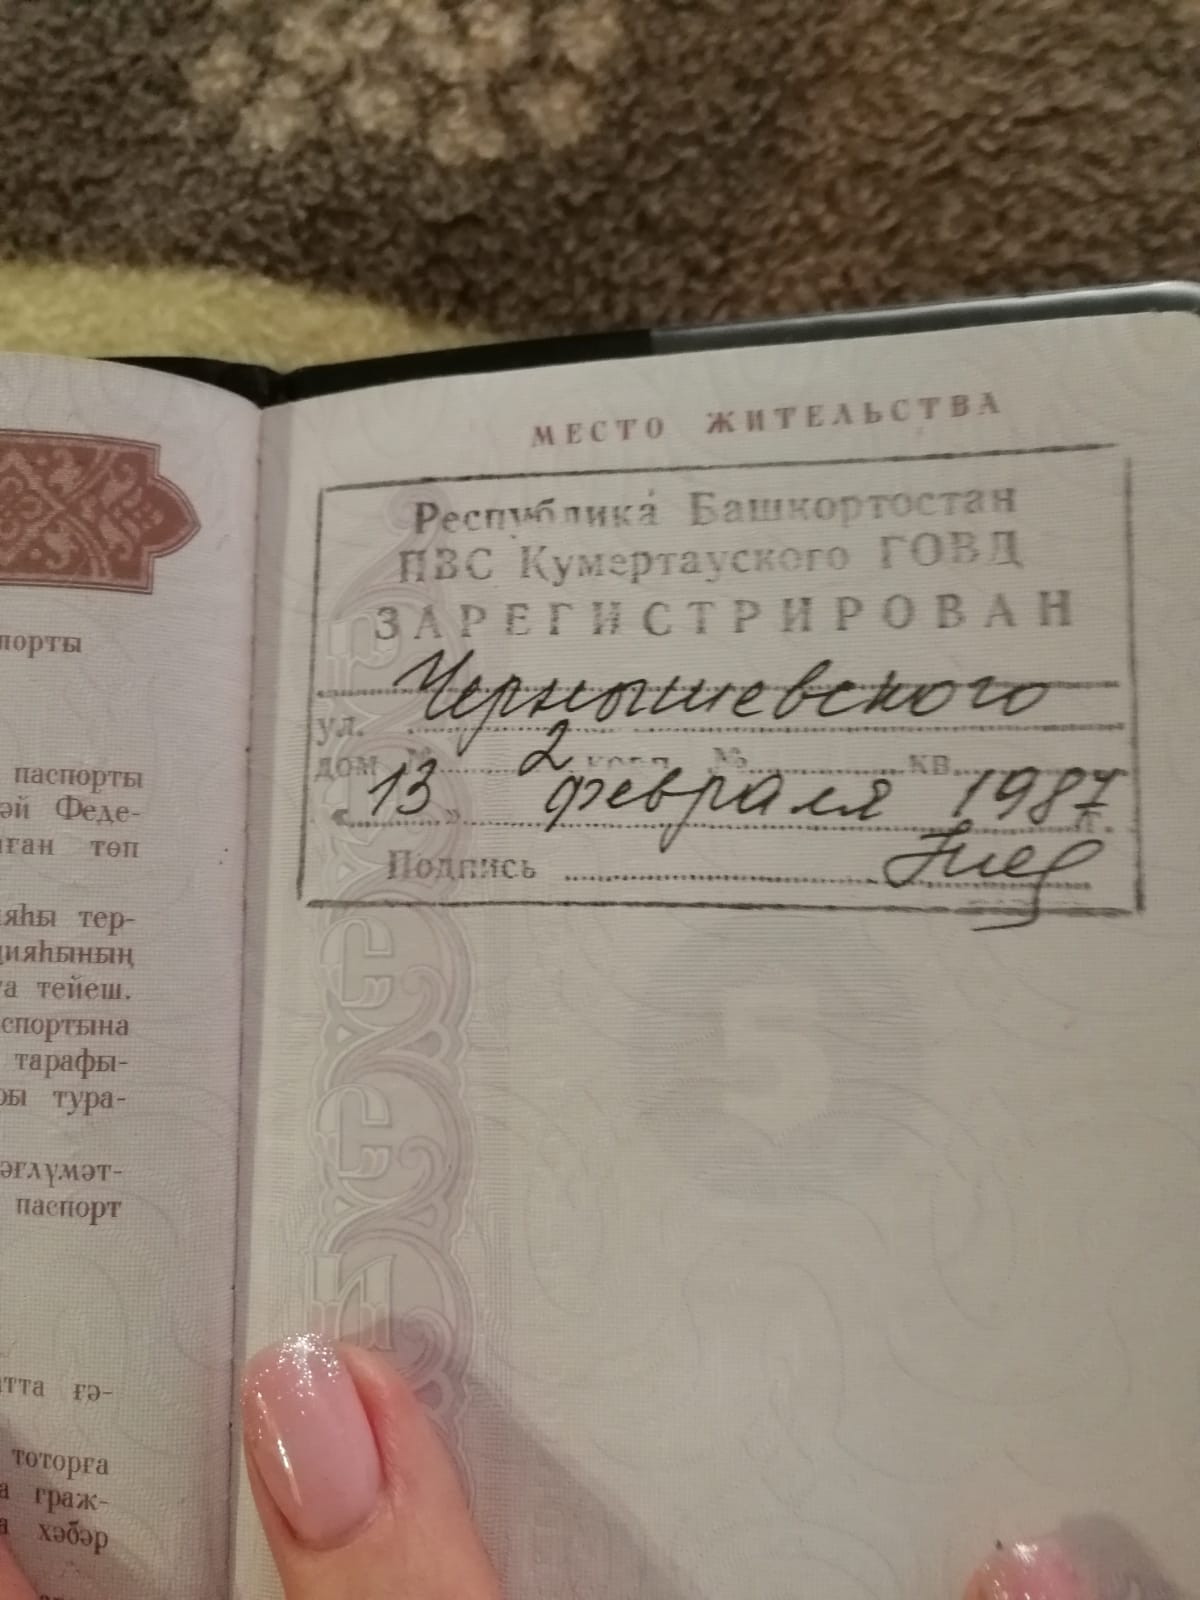 порты
паспорты
әй Феде-
ған төп
яһы тер-
цияһының
а тейеш.
спортына
тарафы-
ры тура-
әғлүмәт-
паспорт
тта ғә-
тоторға
а граж-
а хәбәр
МЕСТО ЖИТЕЛЬСТВА
Республика Башкортостан
ПВС Кумертауского ГОВД
ЗАРЕГИСТРИРОВАН
ул. Чернышевского
дом № 2 корп. № кв.
« 13 » февраля 1987 г.
Подпись